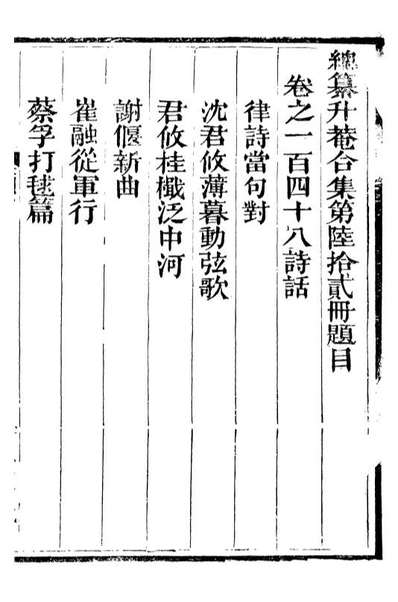 總纂升菴合集第陸拾貳冊題目
卷之一百四十八詩話
律詩當句對
沈君攸薄暮動弦歌
君攸桂檝泛中河
謝偃新曲
崔融從軍行
蔡孚打毬篇